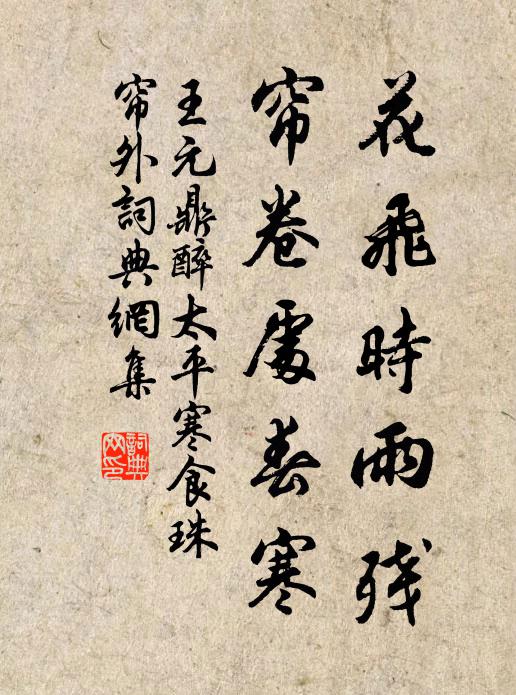 花飛時雨残
帘卷處春寒
王元鼎醉太平寒食珠
帘外詞典網集
詞典
网印